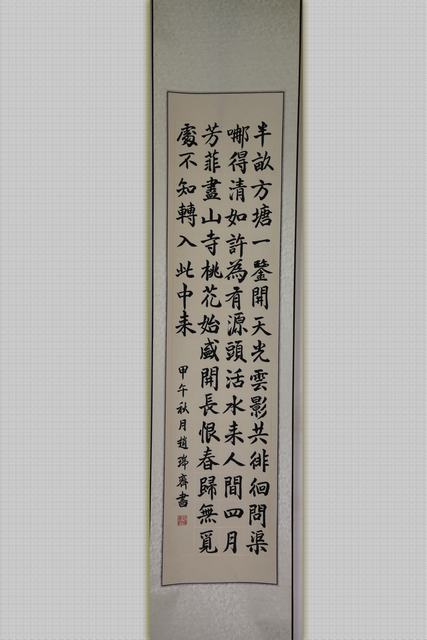 半畝方塘一鑒開天光雲影共徘徊問渠
哪得清如許為有源頭活水来人間四月
芳菲盡山寺桃花始盛開長恨春歸無覓
處不知轉入此中来
甲午秋月趙瑞齋書